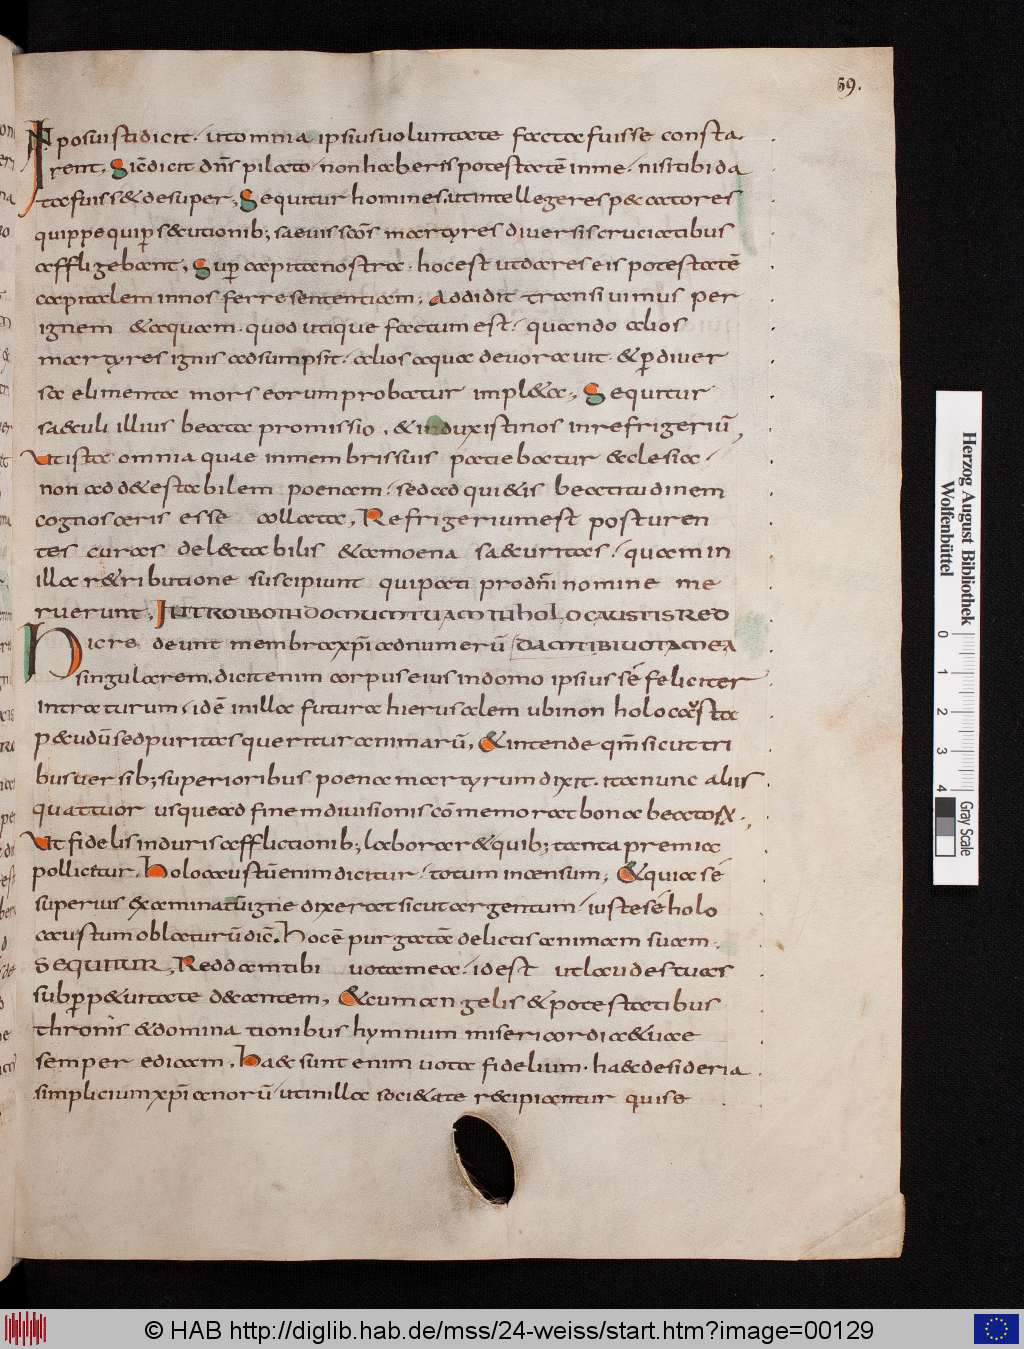 59.
Inposuisti dicit. ut omnia ipsius uoluntate facta fuisse consta
rent, Sic̄ dicit dn̄s pilato. non haberis potestatē in me. nisi tibi da
ta fuiss& desuper, Sequitur homines. ut intellegeres peccatores
quippe qui pers&cutionib; saeuis sc̄os martyres diuersis cruciatibus
affligebant, Sup̄ capita nostra. hoc est ut dares eis potestatē
capitalem in nos ferre sententiam, Addidit transiuimus per
ignem &aquam. quod utique factum est. quando alios
martyres ignis adsumpsit. alios aqua deuorauit. & p̄ diuer
sa elimenta mors eorum probatur impl&a, Sequitur
sæculi illius beata promissio. & induxisti nos in refrigeriū,
Ut ista omnia quae in membris suis patiebatur æclesia.
non ad d&estabilem poenam. sed ad qui&is beatitudinem
cognoscaris esse collata, Refrigerium est post uren
tes curas delectabilis &amoena securitas. quam in
illa r&ributione suscipiunt qui pati pro dn̄i nomine me
ruerunt, INTROIBO IN DOMUM TUAM IN HOLOCAUSTIS RED
Hic redeunt membra xp̄i ad numerū DAM TIBI UOTA MEA
singularem. dicit enim corpus eius in domo ipsius sé feliciter
intraturum. idē in illa futura hierusalem ubi non holocausta
pecudū sed puritas queritur animarū, & intende qm̄ sicut tri
bus uersib; superioribus poena martyrum dixit. ita nunc aliis
quattuor usque ad finem diuisionis cōmemorat bona beatorum.,
Ut fidelis in duris afflictionib; laborar& quib; tanta premia
pollicitur, Holocaustū enim dicitur. totum incensum, & quia sé
superius examinatū igne dixerat sicut argentum. iuste sé holo
caustum oblaturū dic̄. Hoc ē purgata delictis animam suam.
SEQUITUR, Reddam tibi uota mea. id est ut laudes tuas
sub perp&uitate d&cantem, & cum angelis & potestatibus
thronis &dominationibus hymnum misericordiae &uae
semper edicam, Haec sunt enim uota fidelium. haec desideria
simplicium xp̄ianorū. ut in illa soci&ate recipiantur qui se
Herzog August Bibliothek
Wolfenbüttel
0 1 2 3 4
Gray Scale
© HAB http://diglib.hab.de/mss/24-weiss/start.htm?image=00129